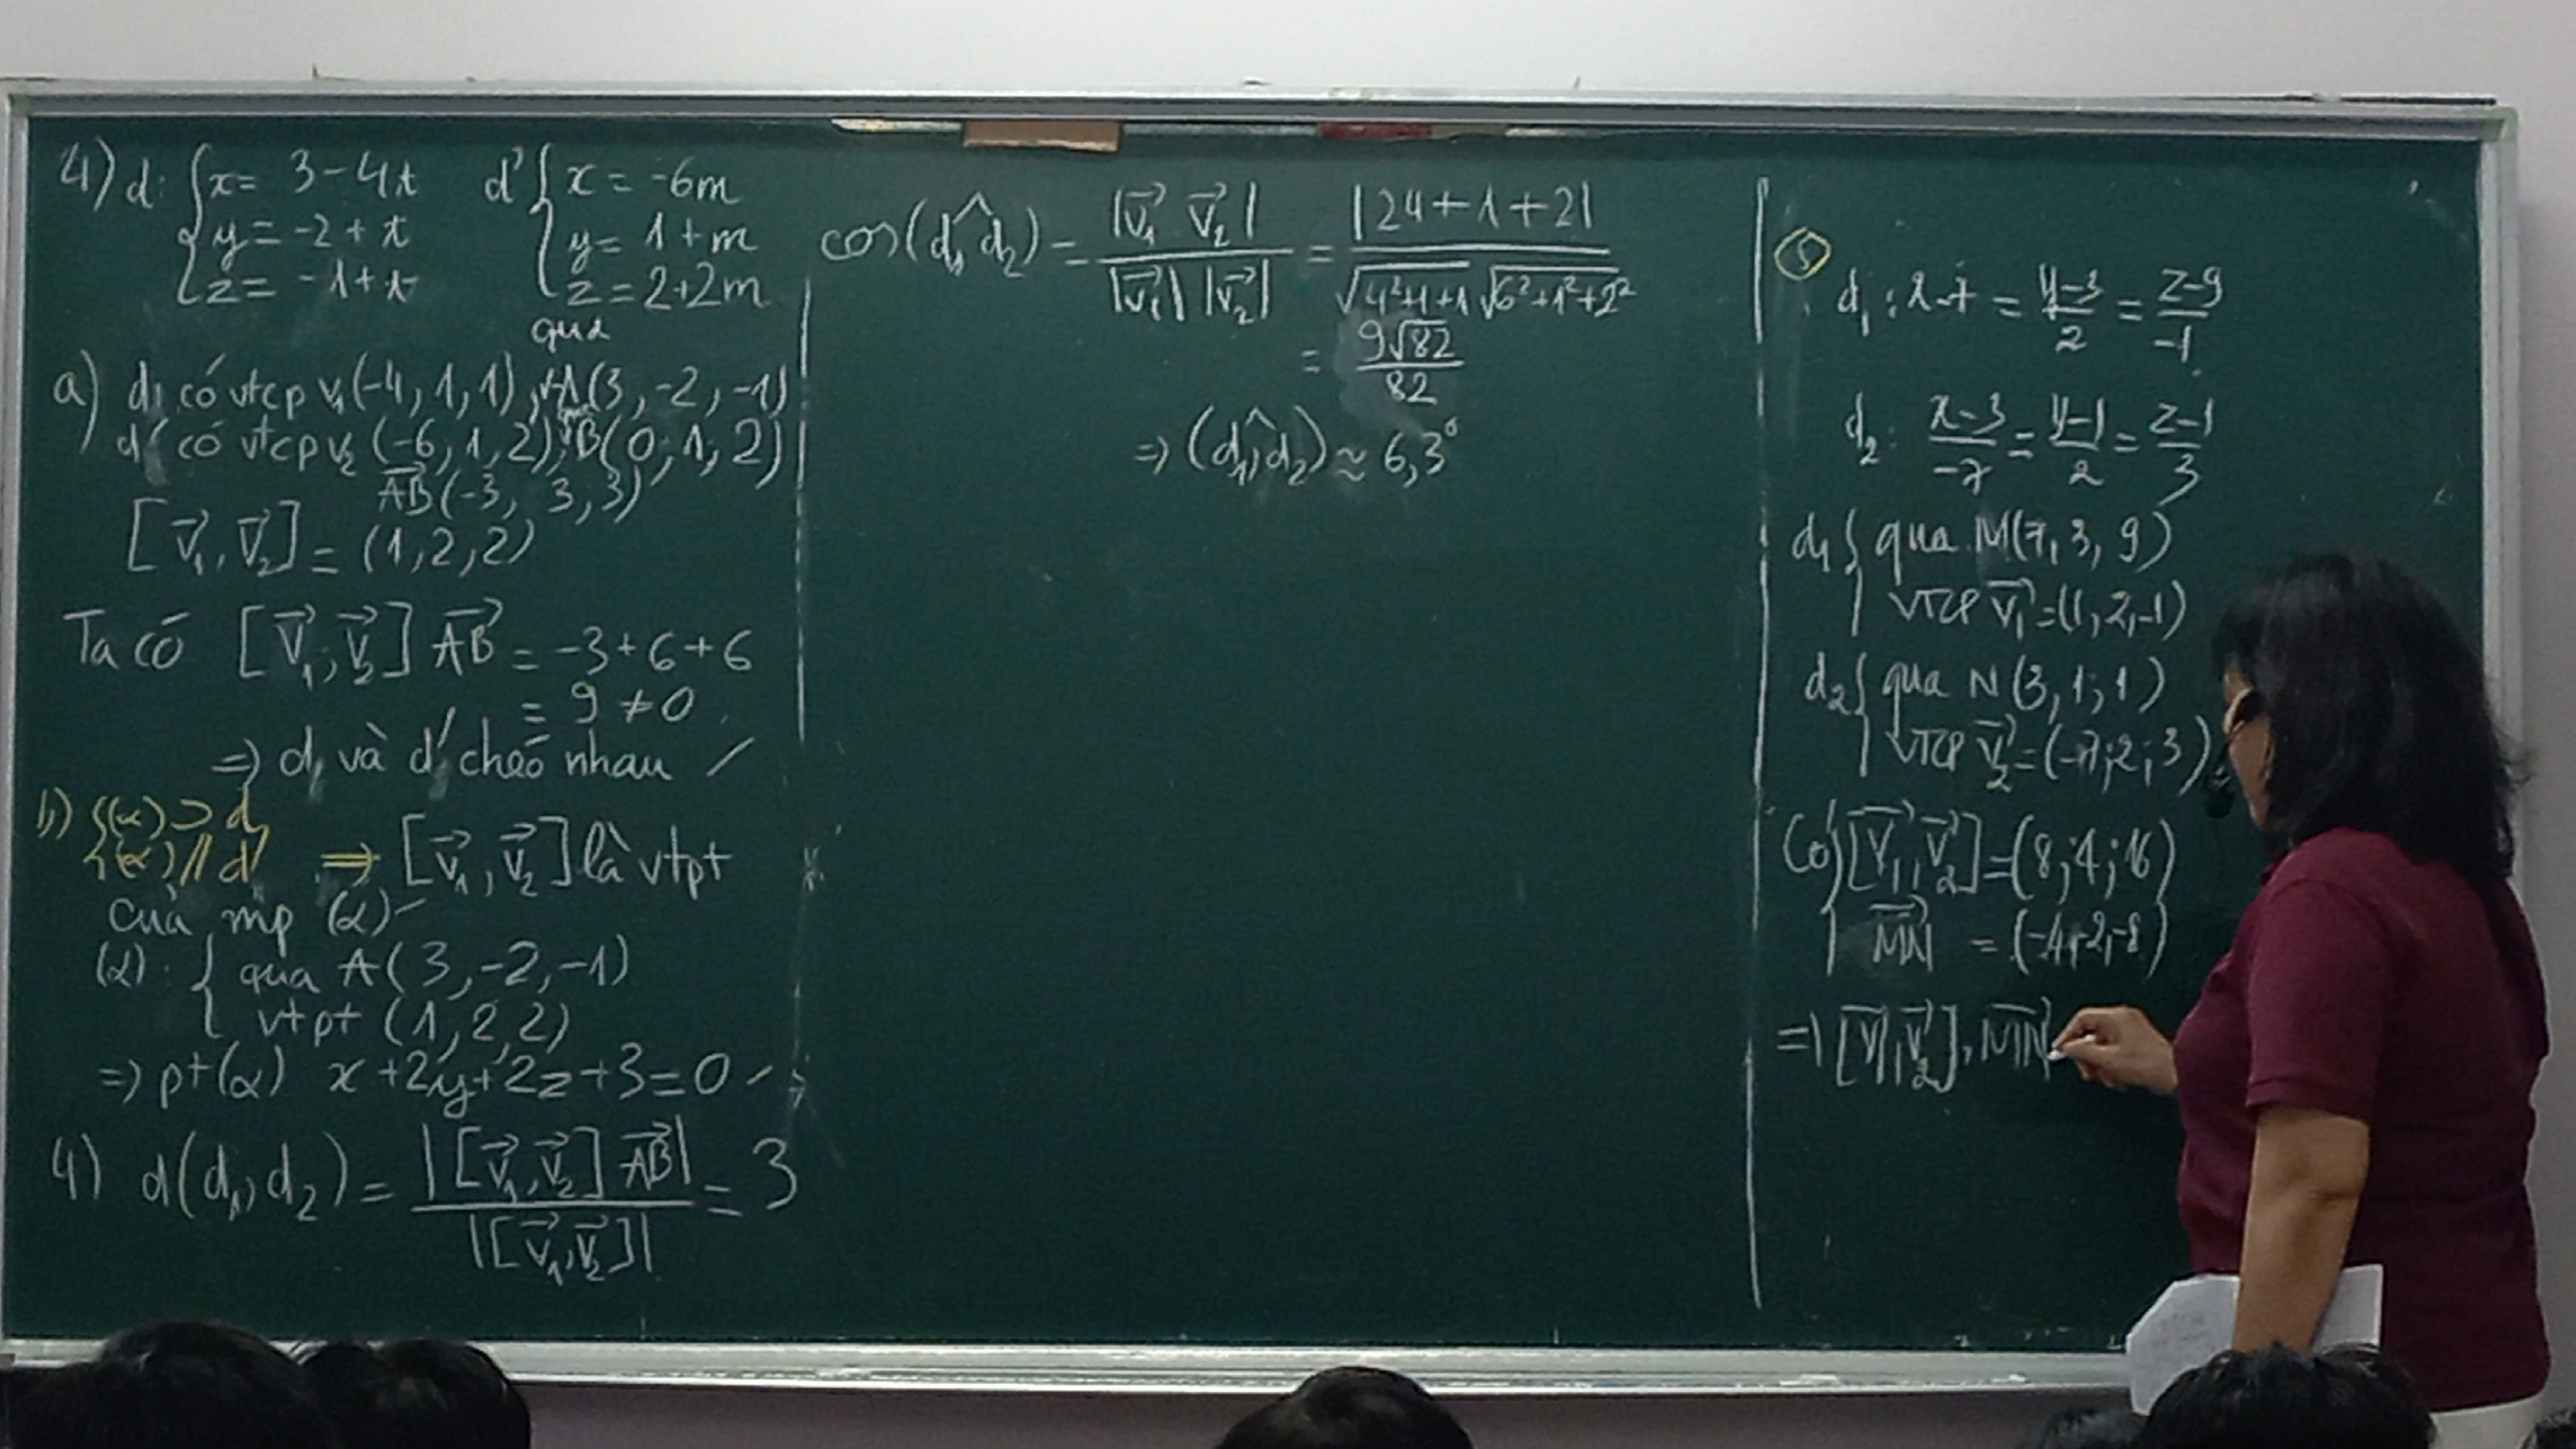 4) d: { x = 3 - 4t
y = -2 + t
z = -1 + t
d' { x = -6m
y = 1 + m
z = 2 + 2m
qua
a) d₁ có vtcp v₁(-4, 1, 1), A(3, -2, -1)
d' có vtcp v₂ (-6, 1, 2), B(0, 1, 2)
AB→(-3, 3, 3)
[v₁→, v₂→] = (1, 2, 2)
Ta có [v₁→; v₂→] AB→ = -3 + 6 + 6
= 9 ≠ 0
=> d₁ và d' chéo nhau
b) { (α) ⊃ d₁
(α) // d' => [v₁→, v₂→] là vtpt
của mp (α)
(α): { qua A(3, -2, -1)
vtpt (1, 2, 2)
=> pt(α) x + 2y + 2z + 3 = 0
4) d(d₁, d₂) = |[v₁→, v₂→] AB→| / |[v₁→, v₂→]| = 3
cos(d₁^d₂) = |v₁→ v₂→| / |v₁→| |v₂→| = |24 + 1 + 2| / √(4²+1+1) √(6²+1²+2²)
= 9√82 / 82
=> (d₁^, d₂) ≈ 6,3°
5
d₁: x-7 = (y-3)/2 = (z-9)/-1
d₂: (x-3)/-7 = (y-1)/2 = (z-1)/3
d₁ { qua M(7, 3, 9)
VTCP v₁→ = (1, 2, -1)
d₂ { qua N (3, 1; 1)
VTCP v₂→ = (-7; 2; 3)
Có [v₁→, v₂→] = (8; 4; 16)
MN→ = (-4, -2, -8)
=> [v₁→, v₂→], MN→